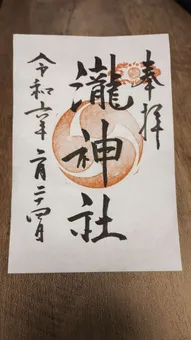 奉拝
瀧神社
令和六年二月二十四日